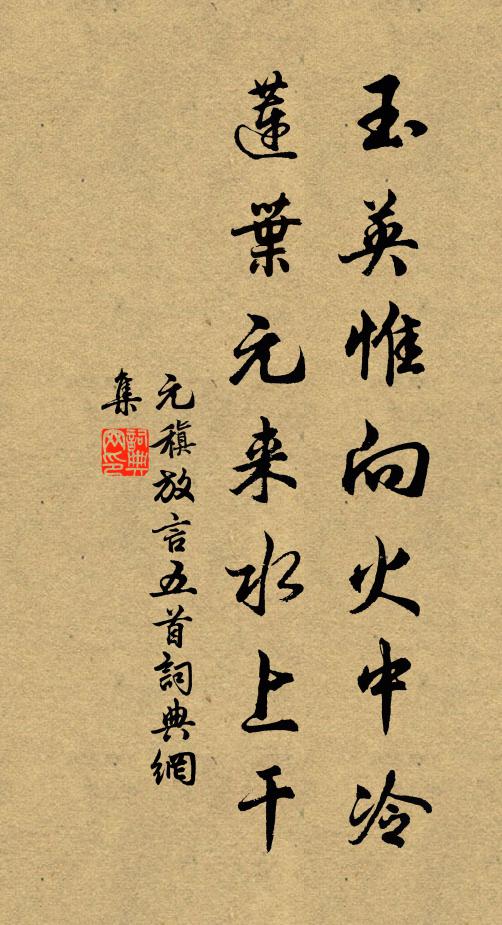 玉英惟向火中冷
蓮葉元来水上干
元稹放言五首詞典網
集
詞典
网印